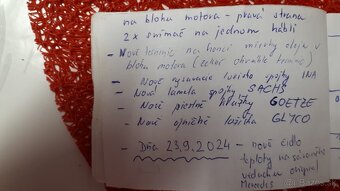 na bloku motora - pravá strana
2x snímač na jednom kábli
- Nové tesnenie na konci mierky oleja v
bloku motora
- Nové vysúvacie ložisko spojky INA
- Nová lamela spojky SACHS
- Nové piestne krúžky GOETZE
- Nové ojničné ložiská GLYCO
- Dňa 23.9.2024 - nové čidlo
teploty nasávaného
vzduchu originál
Mercedes